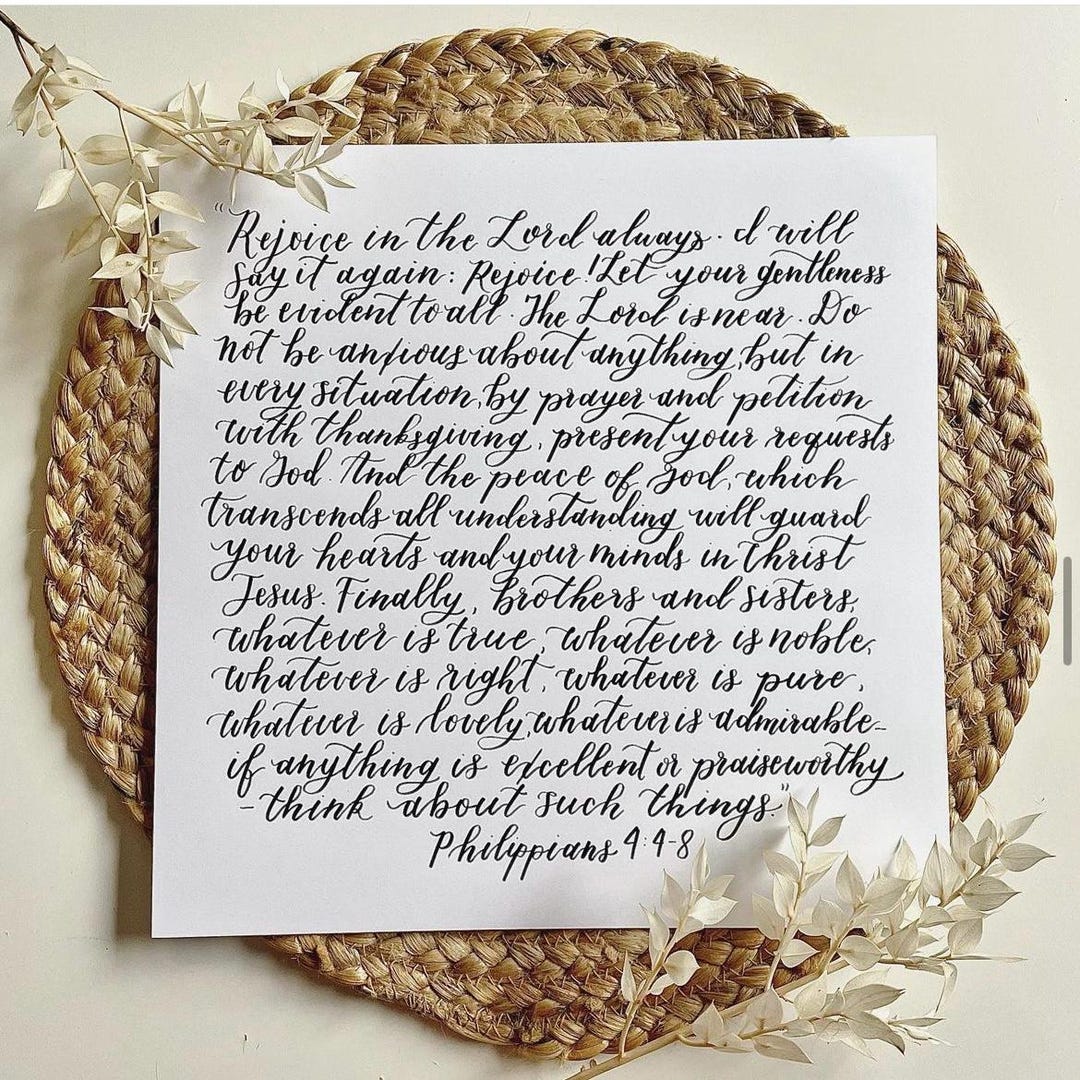 "Rejoice in the Lord always. I will
say it again: Rejoice! Let your gentleness
be evident to all. The Lord is near. Do
not be anxious about anything, but in
every situation, by prayer and petition
with thanksgiving, present your requests
to God. And the peace of God, which
transcends all understanding will guard
your hearts and your minds in Christ
Jesus. Finally, brothers and sisters,
whatever is true, whatever is noble,
whatever is right, whatever is pure,
whatever is lovely, whatever is admirable-
if anything is excellent or praiseworthy
-think about such things."
Philippians 4:4-8